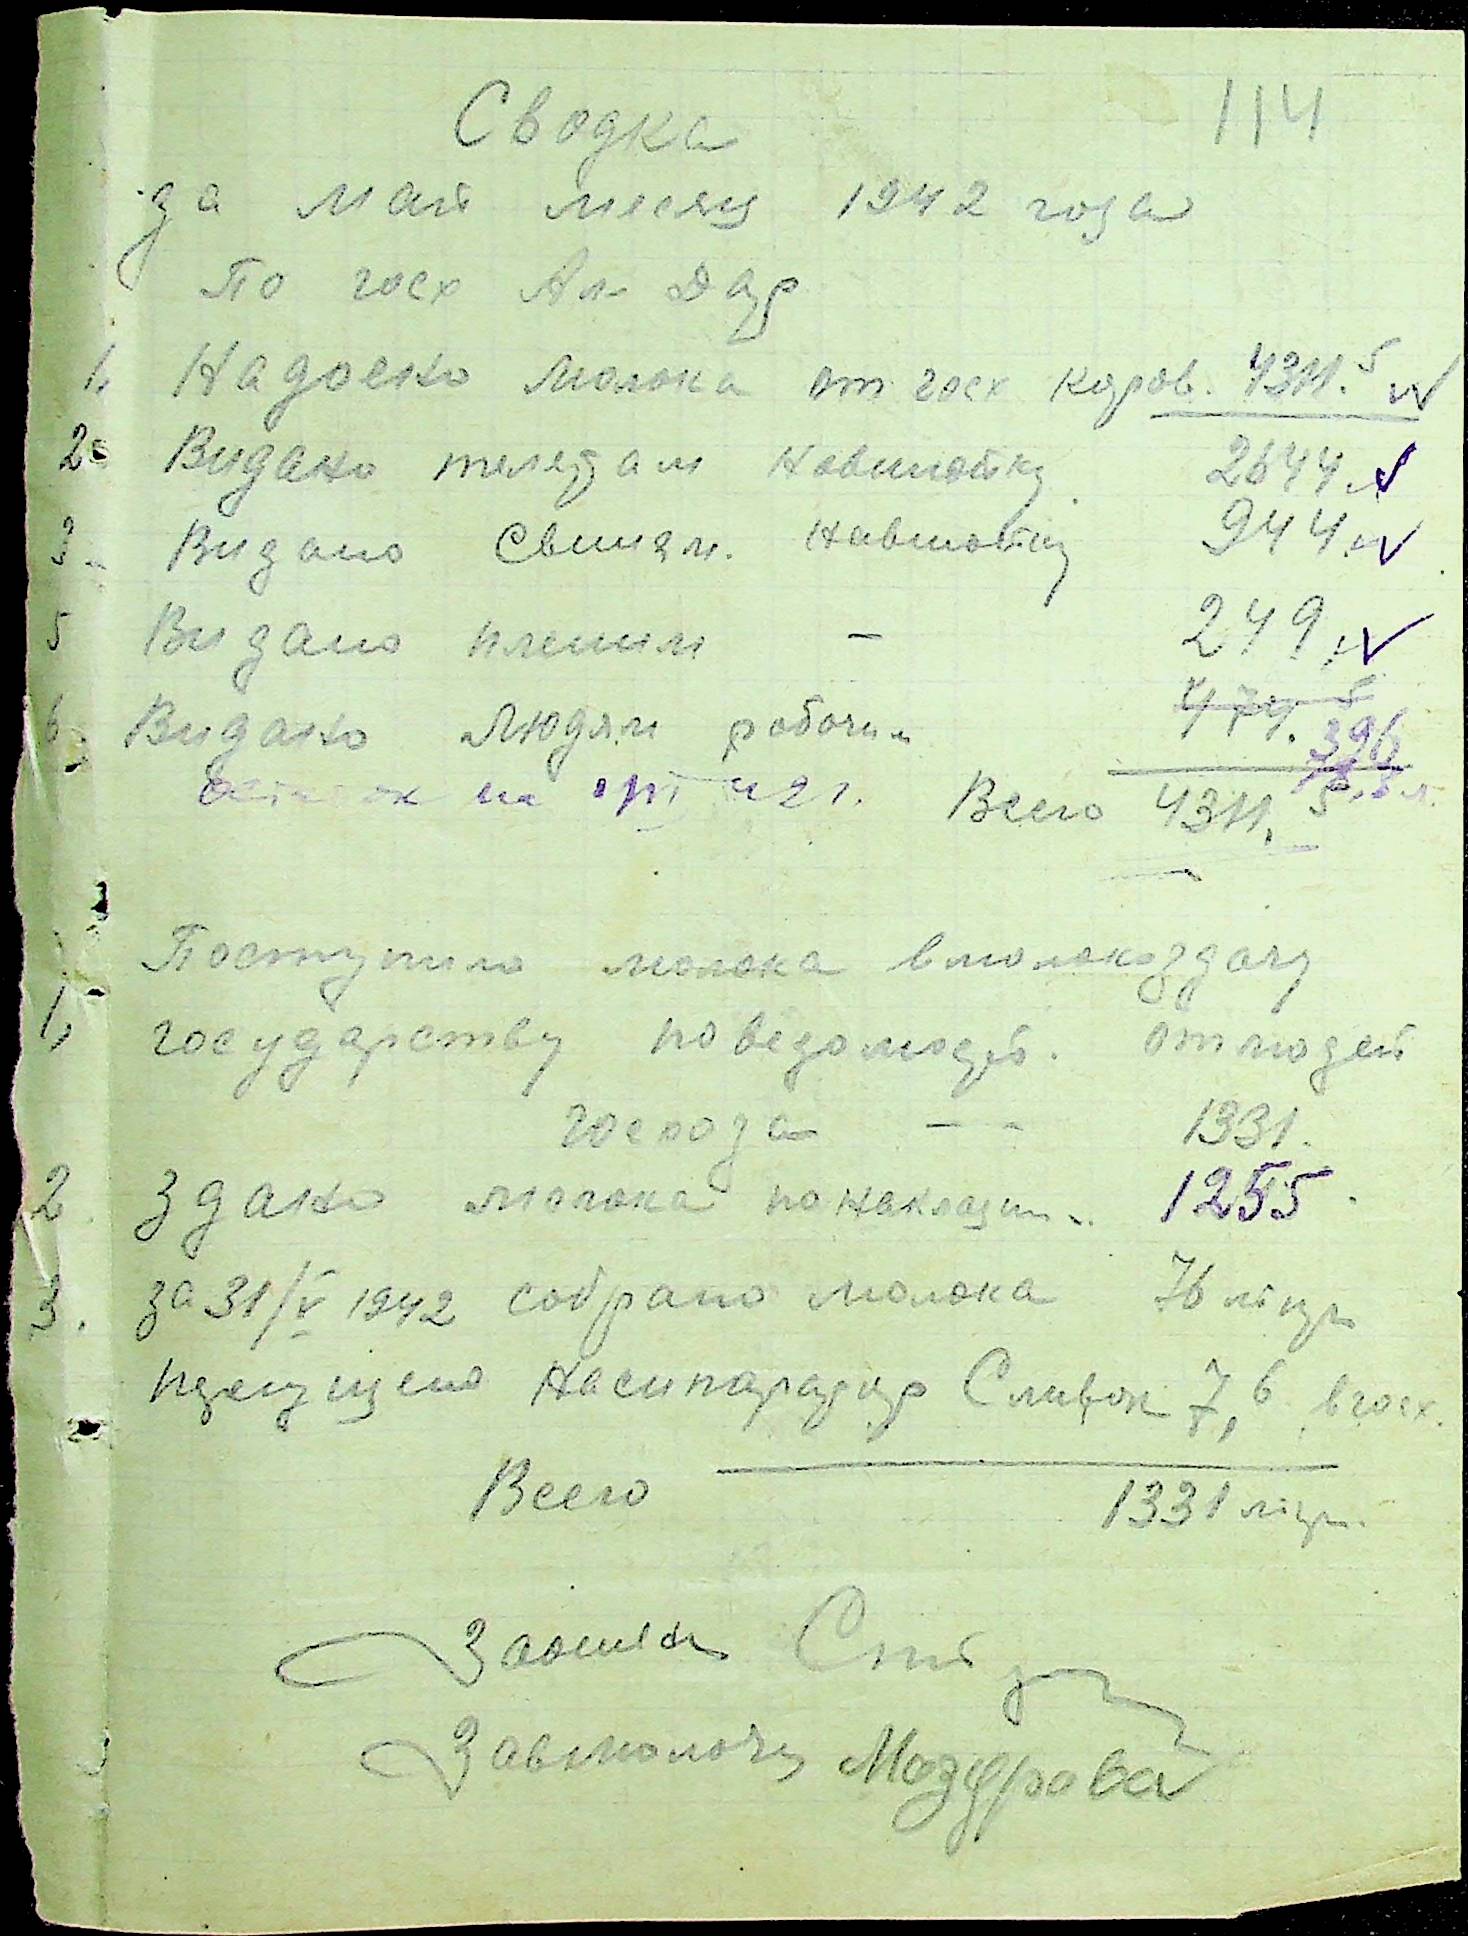 114
Сводка
за май месяц 1942 года
По госх Ал Дар
1. Надоено молока от госх коров. 4311.5
2. Видано телятам 2644
3. Видано Свиням. 944
5 Видано 249
6. Видано Людям робочим 474.5 396
остаток на 42 г.
Всего 4311.5
Поступило молока в молокоздачу
1, государству по ведомости. от людей
госхоза - - 1331.
2 Здано молока по накладн. 1255.
3. за 31/V 1942 собрано молока 76 літр
пропущено На сипаратор Сливок 7,6 в госх.
Всего 1331 літр.
Завмолочн